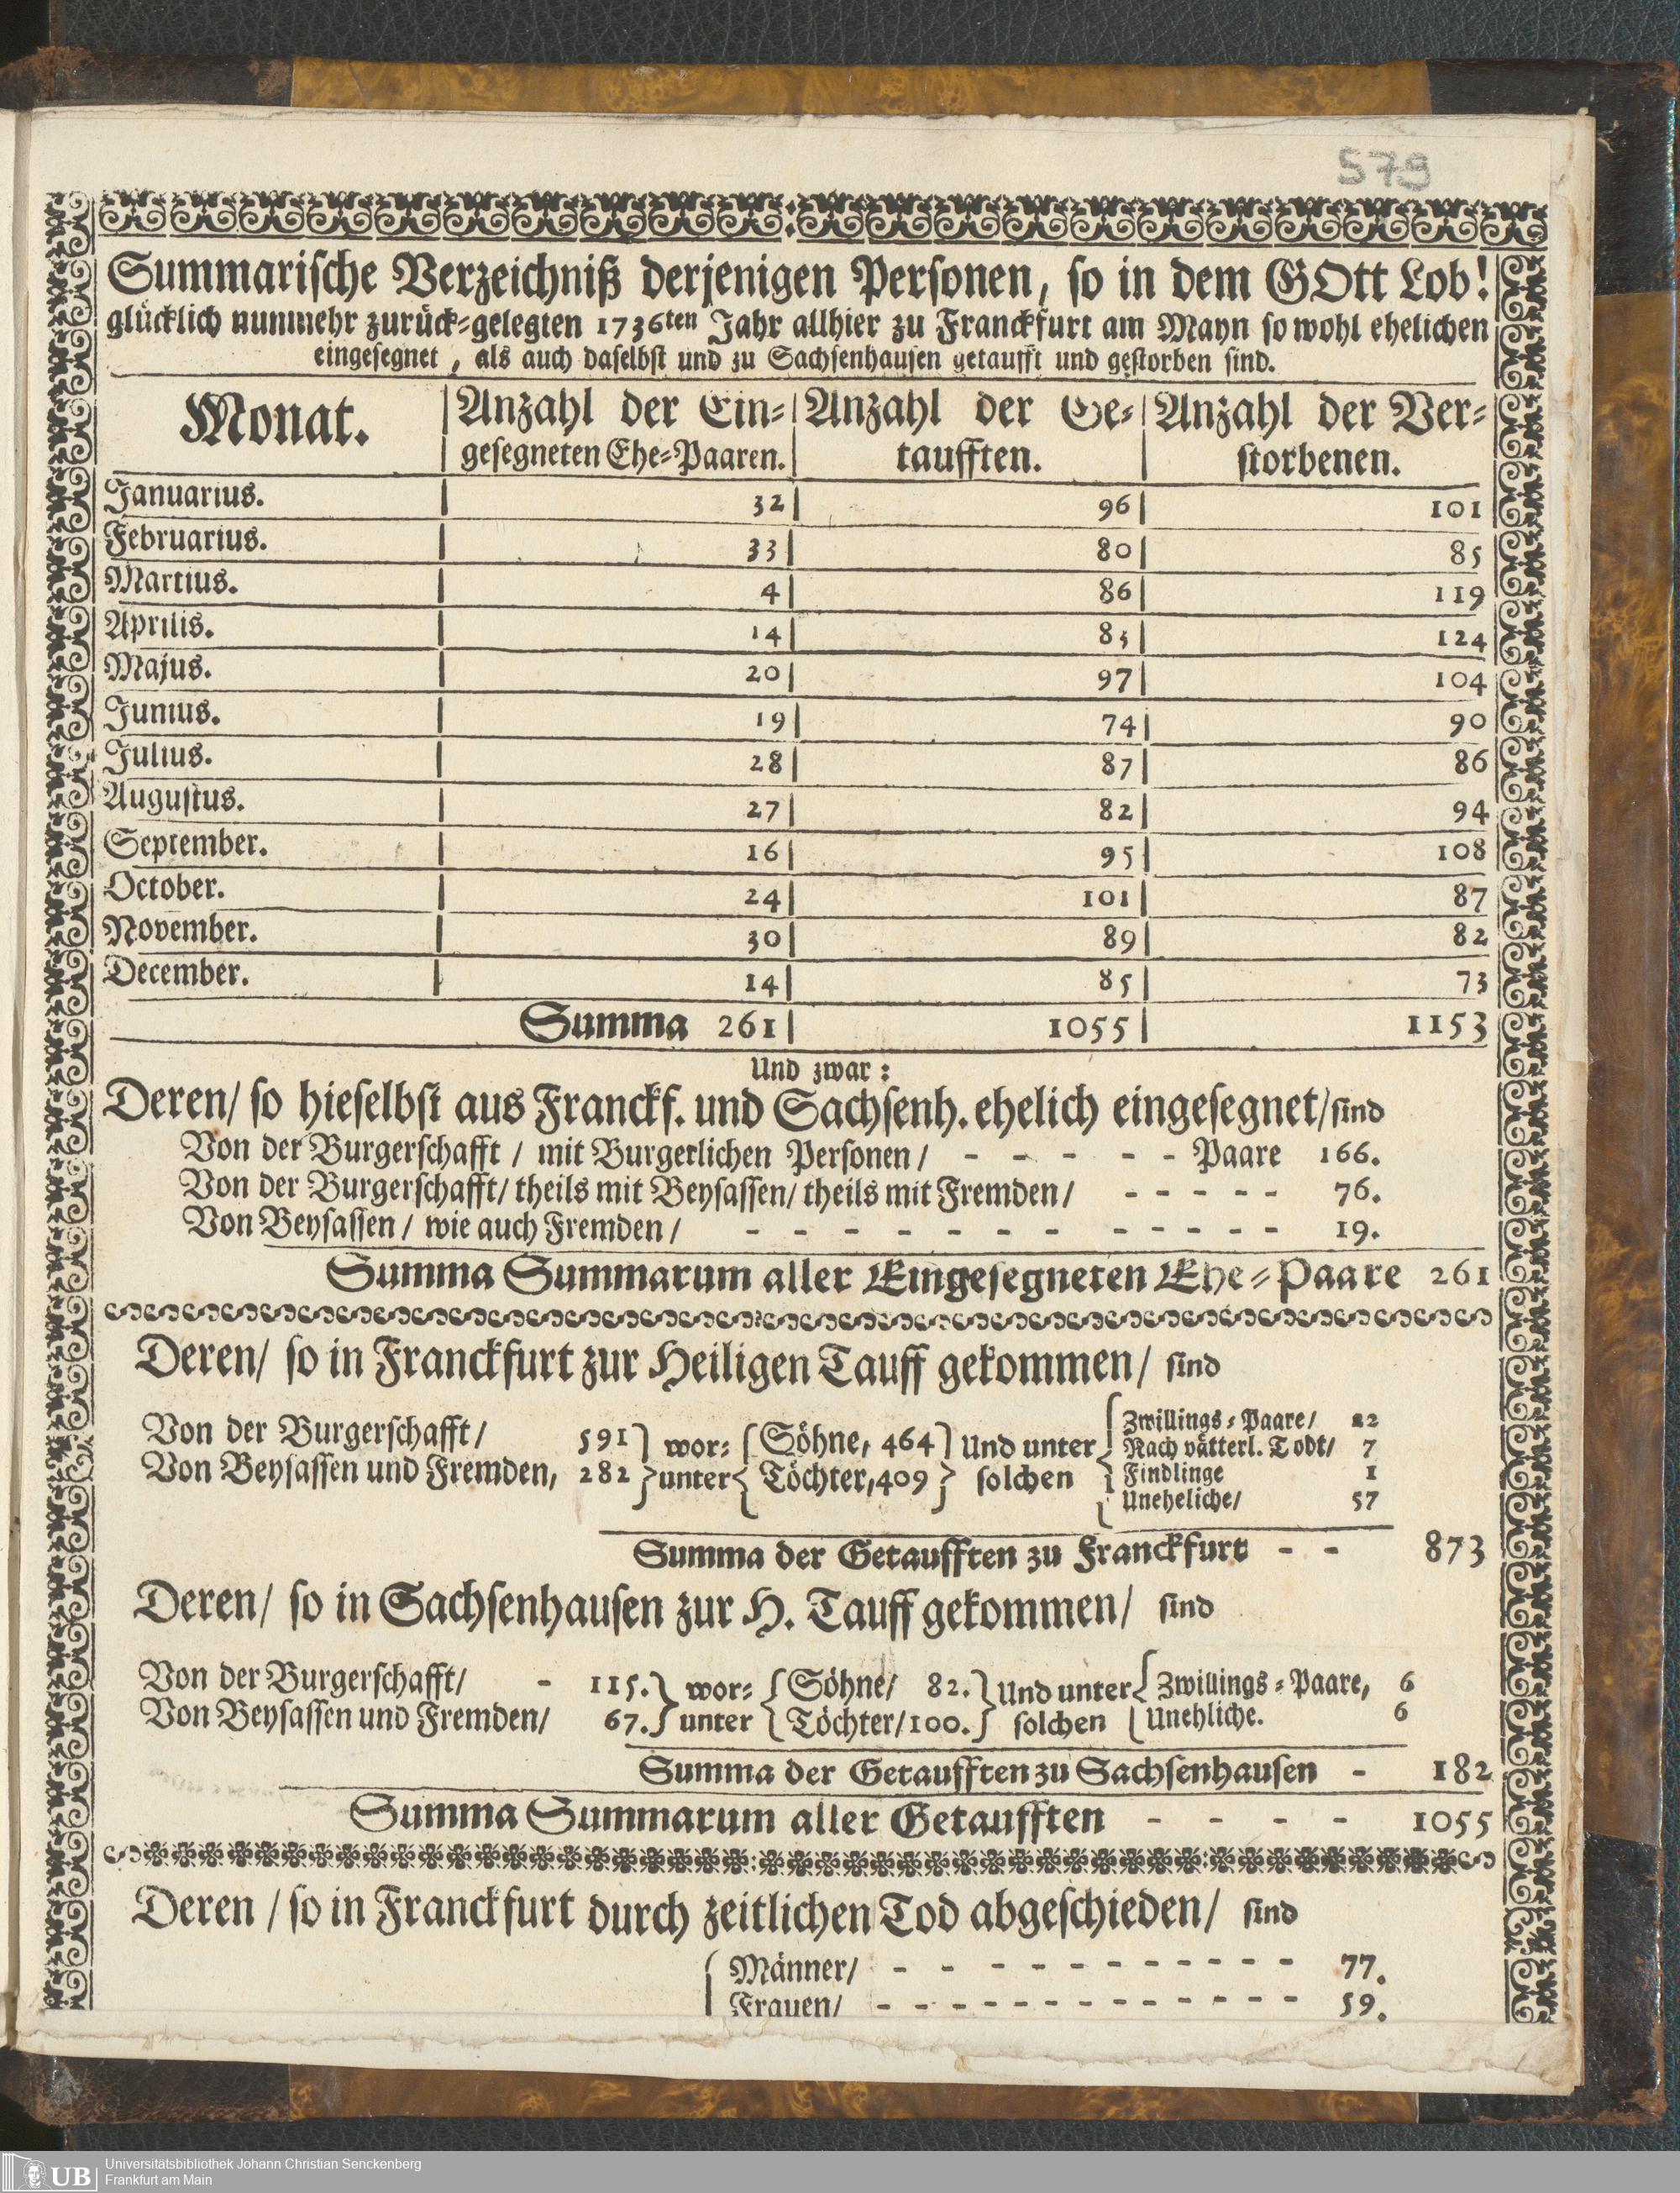 579
Summarische Verzeichniß derjenigen Personen, so in dem GOtt Lob!
glücklich nunmehr zurück-gelegten 1736ten Jahr allhier zu Franckfurt am Mayn so wohl ehelichen
eingesegnet, als auch daselbst und zu Sachsenhausen getaufft und gestorben sind.
Monat. | Anzahl der Ein- | Anzahl der Ge- | Anzahl der Ver-
gesegneten Ehe-Paaren. | taufften. | storbenen.
Januarius. | 32 | 96 | 101
Februarius. | 33 | 80 | 85
Martius. | 4 | 86 | 119
Aprilis. | 14 | 83 | 124
Majus. | 20 | 97 | 104
Junius. | 19 | 74 | 90
Julius. | 28 | 87 | 86
Augustus. | 27 | 82 | 94
September. | 16 | 95 | 108
October. | 24 | 101 | 87
November. | 30 | 89 | 82
December. | 14 | 85 | 73
Summa 261 | 1055 | 1153
Und zwar:
Deren/ so hieselbst aus Franckf. und Sachsenh. ehelich eingesegnet/ sind
Von der Burgerschafft / mit Burgerlichen Personen / - - - - - Paare 166.
Von der Burgerschafft/ theils mit Beysassen/ theils mit Fremden/ - - - - - 76.
Von Beysassen / wie auch Fremden / - - - - - - - - - - - 19.
Summa Summarum aller Eingesegneten Ehe-Paare 261
Deren/ so in Franckfurt zur Heiligen Tauff gekommen/ sind
Von der Burgerschafft/ 591 } wor- { Söhne, 464 } Und unter { Zwillings-Paare/ 22
Nach vätterl. Todt/ 7
Von Beysassen und Fremden, 282 } unter { Töchter, 409 } solchen { Findlinge 1
Uneheliche/ 57
Summa der Getaufften zu Franckfurt - - 873
Deren/ so in Sachsenhausen zur H. Tauff gekommen/ sind
Von der Burgerschafft/ - 115. } wor- { Söhne/ 82. } Und unter { Zwillings-Paare, 6
Von Beysassen und Fremden/ 67. } unter { Töchter/ 100. } solchen { Unehliche. 6
Summa der Getaufften zu Sachsenhausen - 182
Summa Summarum aller Getaufften - - - - 1055
Deren / so in Franckfurt durch zeitlichen Tod abgeschieden/ sind
Männer/ - - - - - - - - - - - 77.
Frauen/ - - - - - - - - - - - - 59.
UB
Universitätsbibliothek Johann Christian Senckenberg
Frankfurt am Main